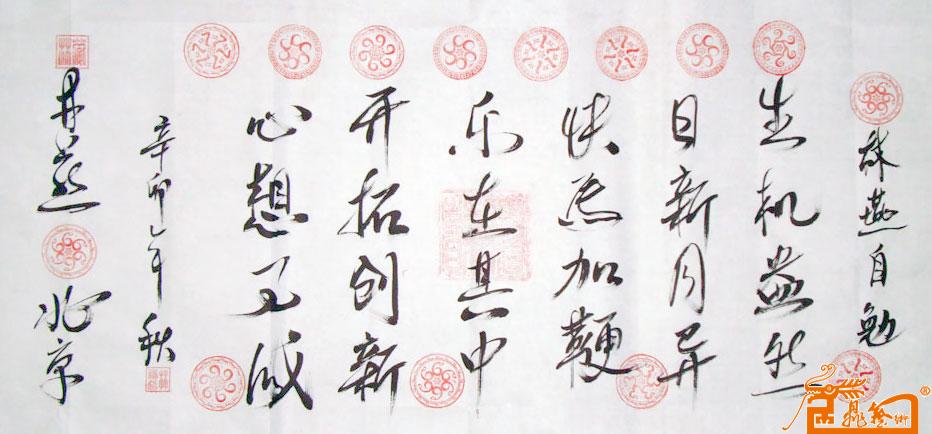 燕自勉
生机盎然
日新月异
快马加鞭
乐在其中
开拓创新
心想事成
辛卯年秋
北京